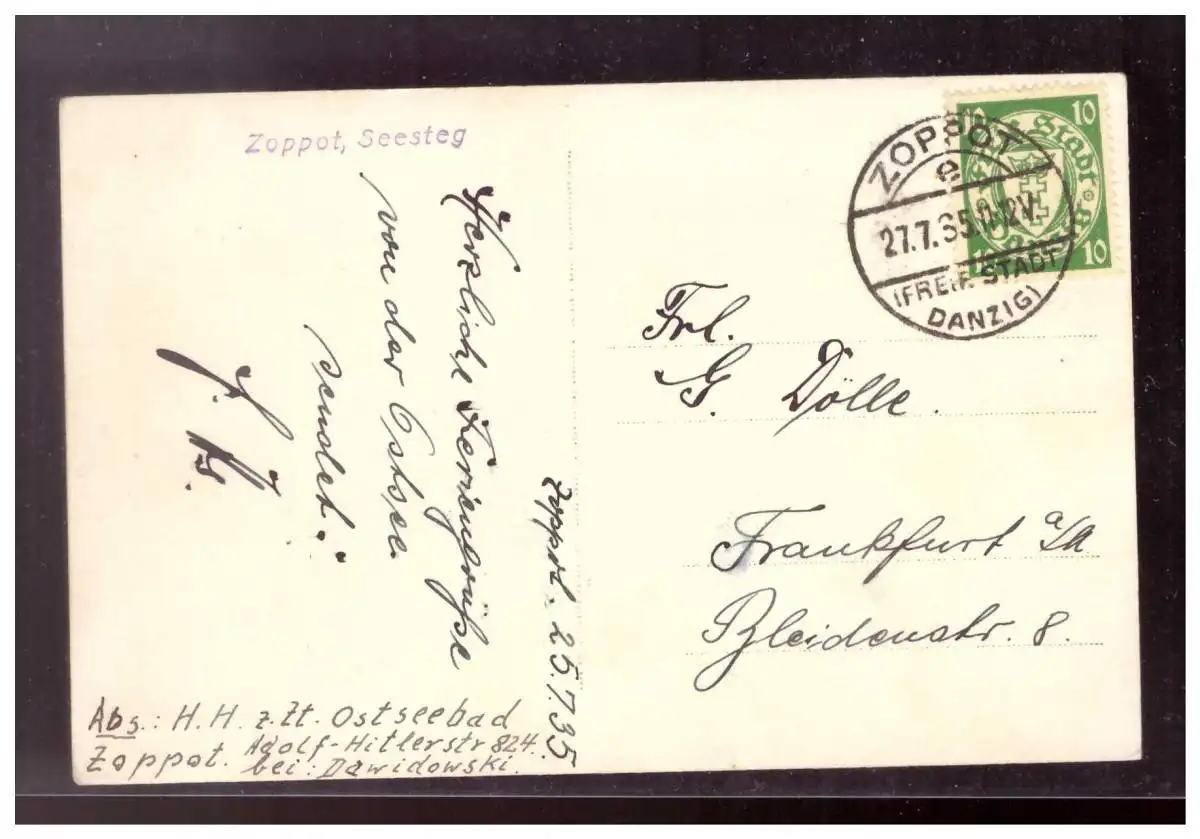 Zoppot, Seesteg
Herzliche Feriengrüße
von der Ostsee
sendet:
Zoppot. 25.7.35
Abs.: H.H. z.Zt. Ostseebad
Zoppot. Adolf-Hitlerstr 824.
bei: Dawidowski.
10 10
Freie Stadt
10 Danzig 10
ZOPPOT
e
27.7.35.11-12V.
(FREIE STADT
DANZIG)
Frl.
G. Dölle.
Frankfurt a/M
Bleidenstr. 8.